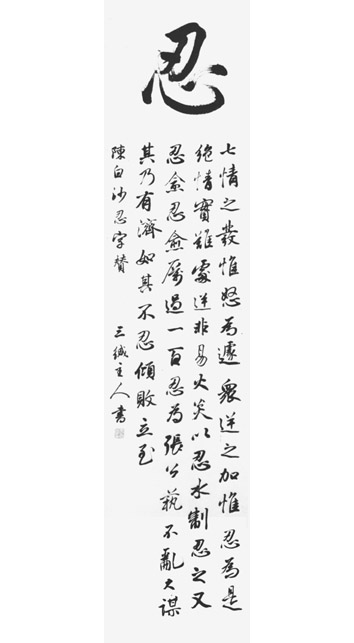 忍
七情之發惟怒為遽眾逆之加惟忍為是
絕情實難處逆非易火炎以忍水制忍之又
忍愈忍愈厲過一百忍為張公藝不亂大謀
其乃有濟如其不忍傾敗立至
陳白沙忍字贊 三緘主人書